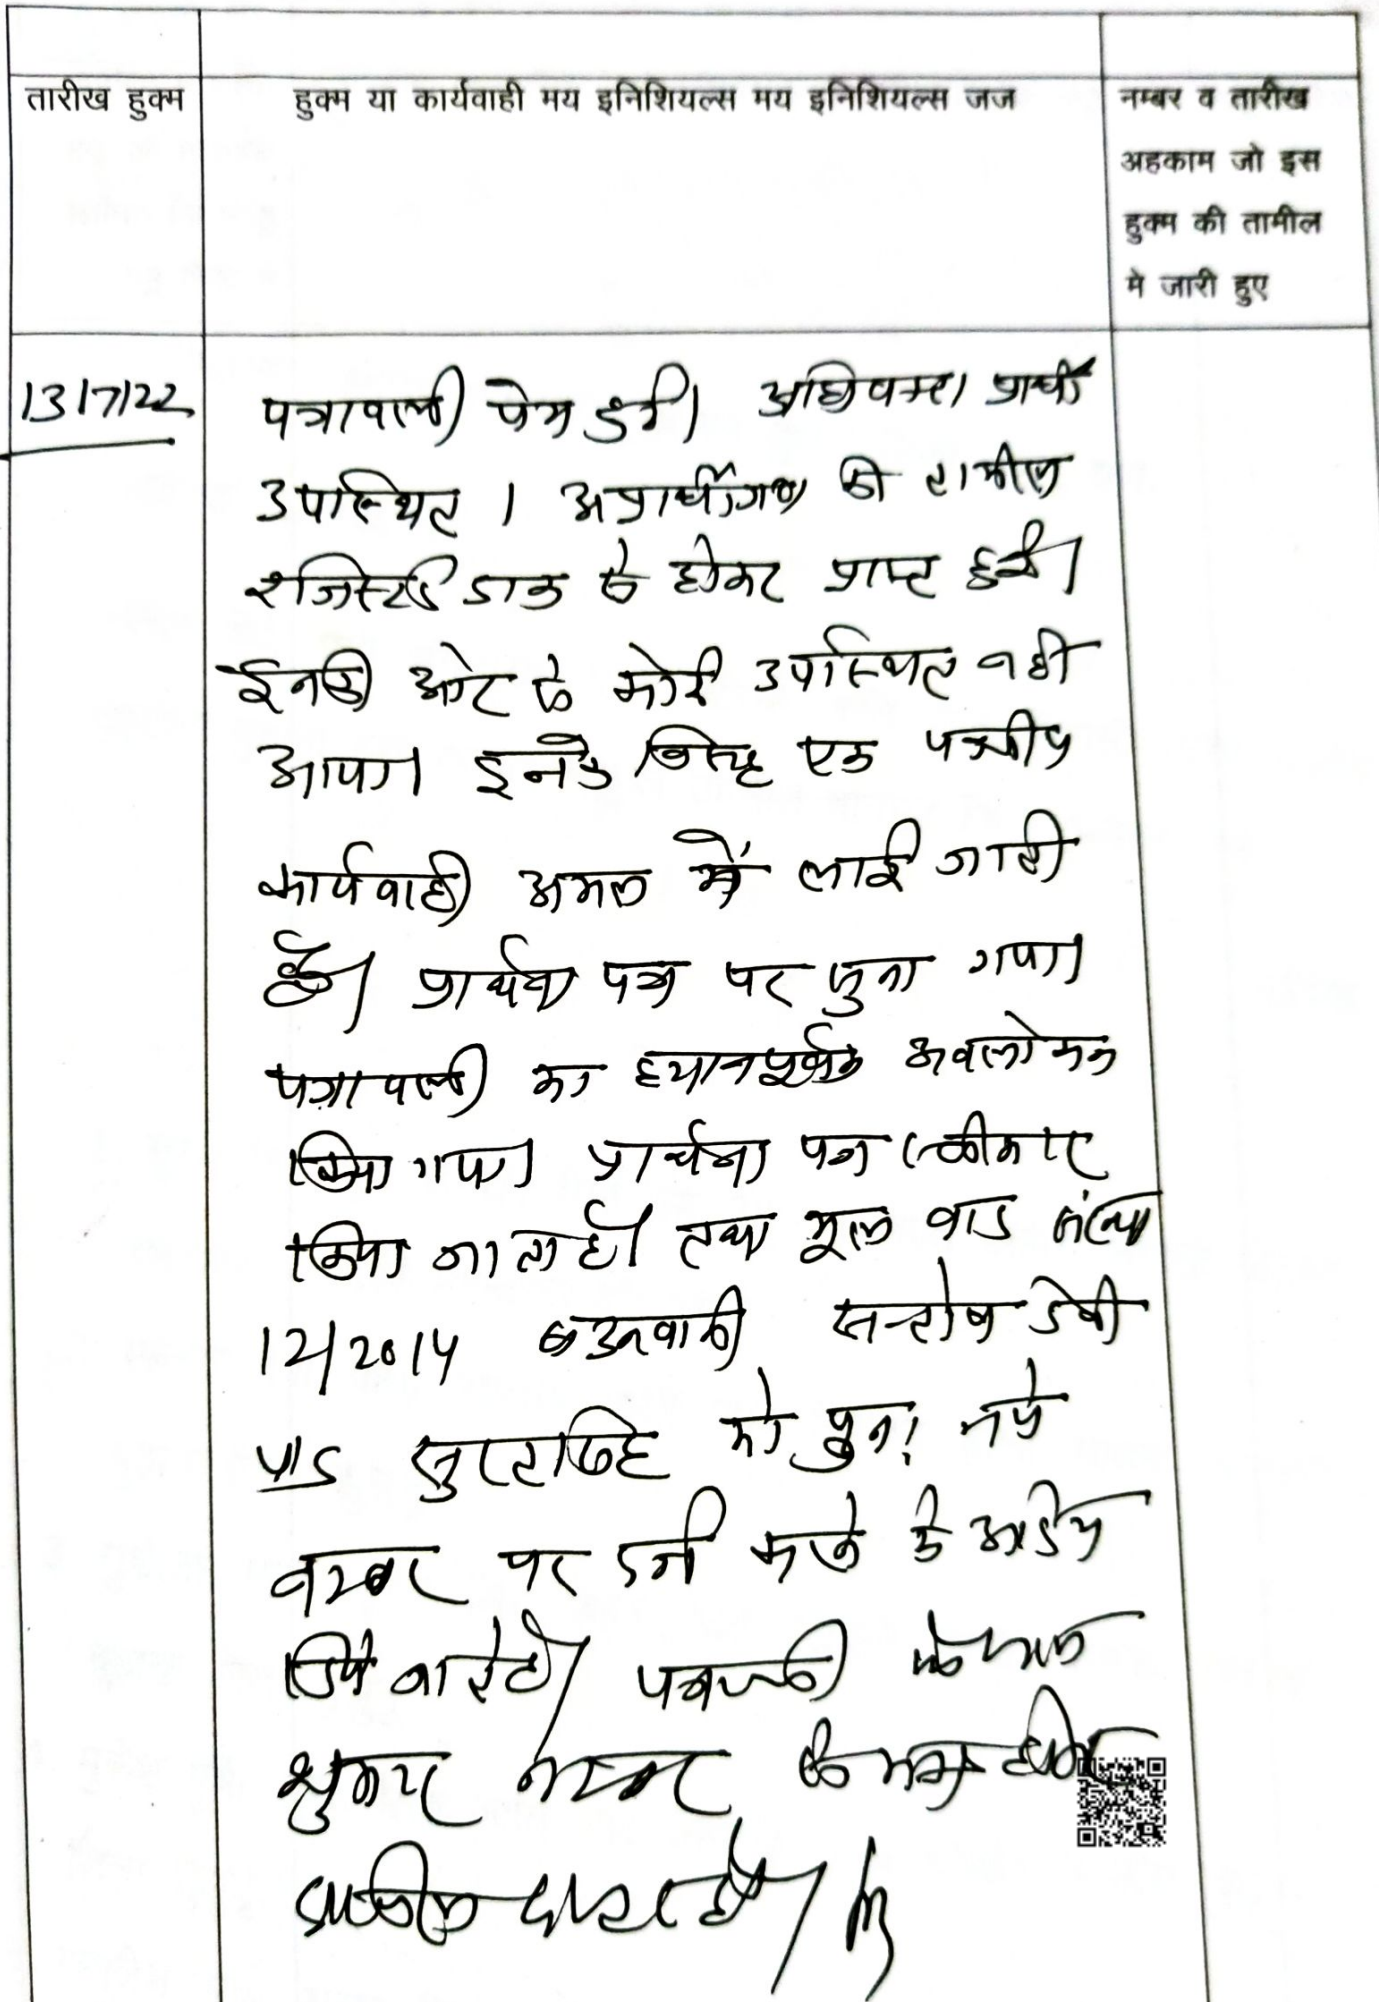 तारीख हुक्म
हुक्म या कार्यवाही मय इनिशियल्स मय इनिशियल्स जज
नम्बर व तारीख
अहकाम जो इस
हुक्म की तामील
मे जारी हुए
13/7/22
पत्रावली पेश हुई। अधिवक्ता प्रार्थी
उपस्थित। अप्रार्थीगण की तामील
रजिस्टर्ड डाक से होकर प्राप्त हुई।
ईनकी ओर से कोई उपस्थित नही
आया। इनके विरूद्ध एक पक्षीय
कार्यवाही अमल में लाई जाती
है। प्रार्थना पत्र पर सुना गया।
पत्रावली का ध्यानपूर्वक अवलोकन
किया गया। प्रार्थना पत्र स्वीकार
किया जाता है। तथा मूल वाद संख्या
12/2014 बउनवानी सन्तोष देवी
v/s सुरतसिंह को पुनः नये
नम्बर पर दर्ज करने के आदेश
दिये जाते है। पत्रावली फैसल
शुमार नम्बर से कम होकर
दाखिल दफ्तर हो।